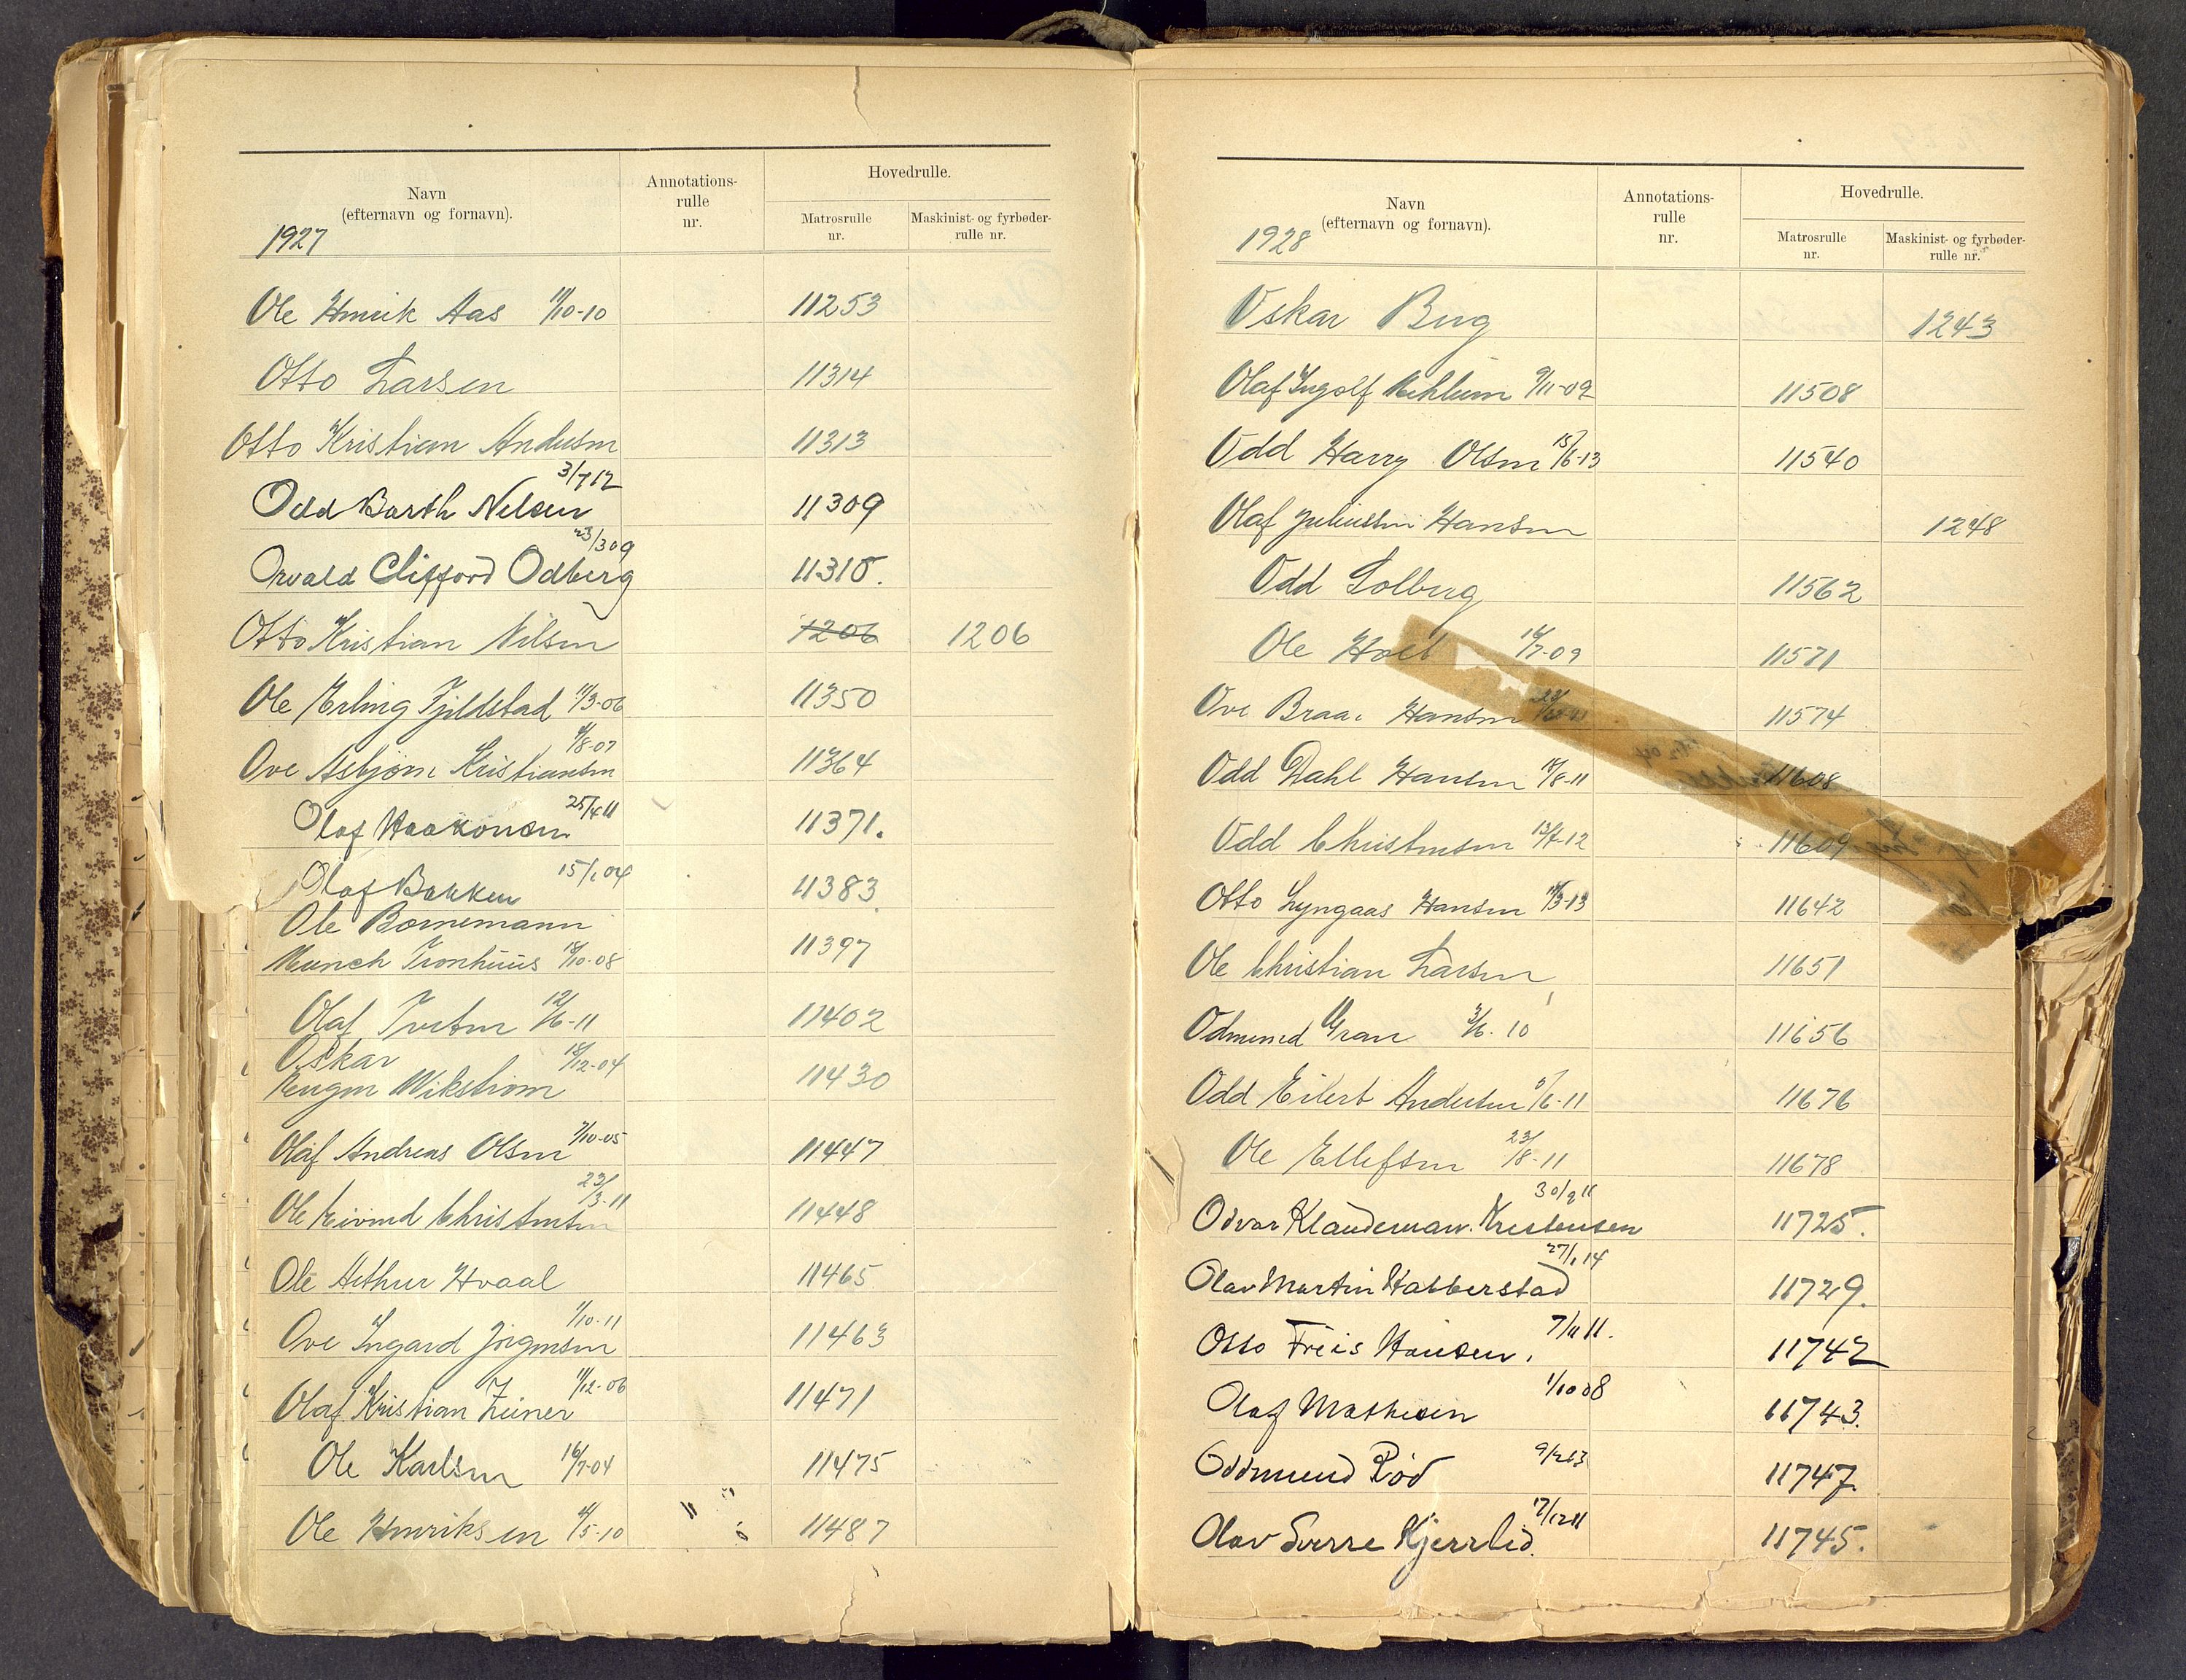 Navn
(efternavn og fornavn).
Annotations-
rulle
nr.
Hovedrulle.
Matrosrulle
nr.
Maskinist- og fyrbøder-
rulle nr.
1927
Ole Henrik Aas 11/10-10 11253
Otto Larsen 11314
Otto Kristian Andersen 11313
3/7 12
Odd Barth Nelsen 11309
23/3 09
Orvald Clifford Odberg 11315.
Otto Kristian Nilsen 1206 1206
Ole Erling Fjeldstad 11/3-06 11350
9/8-07
Ove Asbjørn Kristiansen 11364
25/4 11
Olaf Haakonsen 11371.
Olaf Bakken 15/1 04 11383.
Ole Bornemann
Munch Tronhuus 18/10-08 11397
Olaf Iversen 12/6-11 11402
Oskar 18/12-04
Eugen Wikstrøm 11430
Olaf Andreas Olsen 7/10-05 11447
23/3-11
Ole Eivind Christensen 11448
Ole Arthur Hvaal 11465
1/10-11
Ove Ingard Jørgensen 11463
11/12-06
Olaf Kristian Zeiner 11471
Ole Karlsen 16/7-04 11475
Ole Henriksen 4/5-10 11487
Navn
(efternavn og fornavn).
Annotations-
rulle
nr.
Hovedrulle.
Matrosrulle
nr.
Maskinist- og fyrbøder-
rulle nr.
1928
Oskar Berg 1243
Olaf Ingolf 9/11-09 11508
Odd Harry Olsen 15/6-13 11540
Olaf Hansen 1248
Odd Solberg 11562
Ole Hoel 14/7-09 11571
Ove Hansen 11574
Odd Dahl Hansen 18/8-11 11608
Odd Christensen 13/7-12 11609
Otto Lyngaas Hansen 18/3-13 11642
Ole Christian Larsen 11651
Odmund Gran 3/6-10 11656
Odd Eilert Andersen 5/6-11 11676
Ole Ellefsen 23/8-11 11678
30/9 11
Odvar Klaudeman Kristensen 11725.
27/1 14
Olav Martin Habberstad 11729.
7/11 11.
Otto Friis Hansen. 11742
1/10 08
Olaf Mathisen 11743.
Oddmund Rød 9/2 13 11747.
17/12 11
Olav Sverre Kjerrlid. 11745.